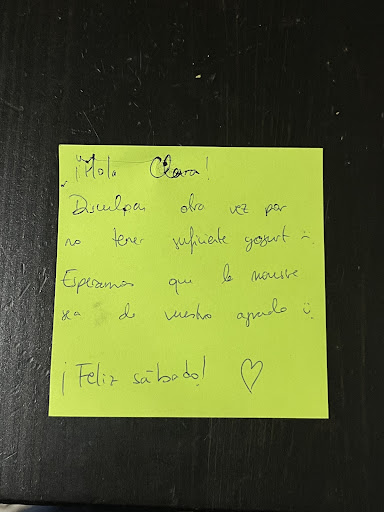 ¡Hola Clara!
Disculpas otra vez por
no tener suficiente yogurt :(
Esperamos que la mousse
sea de vuestro agrado :)
¡Feliz sábado! ♡